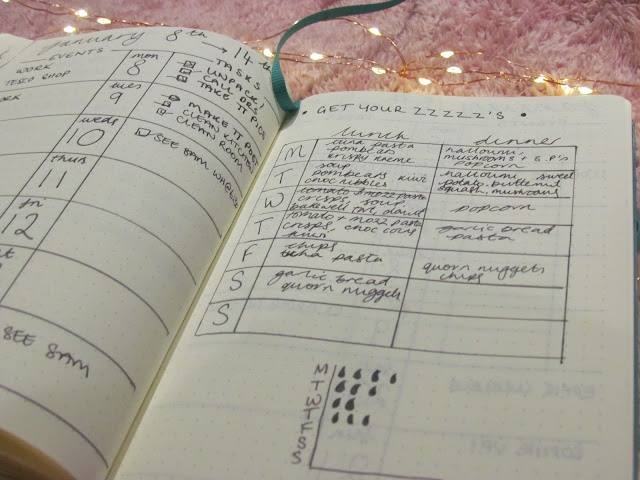 January 8th → 14th
EVENTS
WORK
TESCO SHOP
WORK
mon
8
TASKS
UNPACK!
CALL DRS
TAKE TT PICS
tues
9
MAKE TT POST
CLEAN KITCHEN
CLEAN ROOM
weds
10
SEE SAM
thurs
11
fri
12
SEE SAM
• GET YOUR ZZZZZ'S •
lunch
dinner
M
tuna pasta
pombears
krispy kreme
halloumi,
mushrooms + S.P's
popcorn
T
soup
pombears kiwi
choc nibbles
halloumi sweet
potato, butternut
squash, mushrooms
W
tomato + mozz pasta
crisps, soup,
bakewell tart
popcorn
T
tomato + mozz pasta
crisps, choc coins
kiwi
garlic bread
pasta
F
chips
tuna pasta
quorn nuggets
chips
S
garlic bread
quorn nuggets
S
M
T
W
T
F
S
S